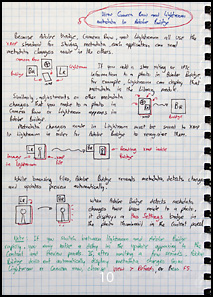 View Camera Raw and Lightroom
metadata in Adobe Bridge
Because Adobe Bridge, Camera Raw, and Lightroom all use the
XMP standard for storing metadata, each application can read
metadata changes made in the others.
Camera Raw
Br
Lr
If you add a star rating or IPTC
information to a photo in Adobe Bridge,
for example, Lightroom can display that
metadata in the Library module.
Similarly, adjustments or other metadata
changes that you make to a photo in
Camera Raw or Lightroom appears in
Adobe Bridge.
Br
Metadata changes made in Lightroom must be saved to XMP
in Lightroom in order for Adobe Bridge to recognize them.
Image
in Lightroom
XMP
Bridge
While browsing files, Adobe Bridge reveals metadata detects changes
and updates previews automatically.
Lr
Br
When Adobe Bridge detects metadata
changes have been made to a photo,
it displays a Has Settings badge in
the photo thumbnail in the Content panel
Note: If you switch between Lightroom and Adobe Bridge
rapidly, you may notice a delay in the update appearing in the
Content and Preview panels. If, after waiting a few seconds, Adobe
Bridge does not automatically display changes
Lightroom or Camera Raw, choose View > Refresh, or Press F5.
10